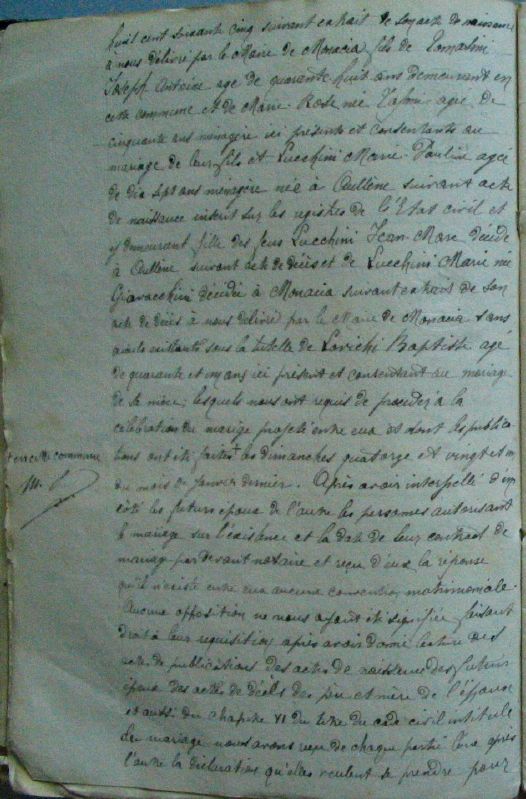 huit cent soixante cinq suivant extrait de son acte de naissance
à nous délivré par le Maire de Monacia fils de Tomasini
Joseph Antoine agé de quarante huit ans demeurant en
cette commune et de Marie Rose née agée de
cinquante ans menagere ici présents et consentants au
mariage de leur fils et Lucchini Marie Pauline agée
de dix sept ans ménagère née à Aullène suivant acte
de naissance inscrit sur les registres de l'Etat civil et
y demeurant fille des feus Lucchini Jean Marc décédé
à Aullène suivant acte de décès et de Lucchini Marie née
Giacacchini décédée à Monacia suivant extrait de son
acte de décès à nous délivré par le Maire de Monacia sans
sous la tutelle de Baptiste agé
de quarante et un ans ici présent et consentant au mariage
de sa nièce; lesquels nous ont requis de procéder à la
célébration du mariage projeté entre eux et dont les publica
tions ont été faites + les dimanches quatorze et vingt et un
du mois de Janvier dernier. Après avoir interpellé d'un
côté les futurs epoux de l'autre les personnes autorisant
le mariage sur l'existence et la date de leur contrat de
mariage par devant notaire et reçu d'eux la réponse
qu'il n'existe entre eux aucune convention matrimoniale.
Aucune opposition ne nous ayant été signifiée faisant
droit à leur requisition après avoir donné lecture des
actes de publications des actes de naissance des futurs
époux des actes de décès des père et mère de l'épouse
et aussi du chapitre VI du titre du code civil intitulé
du mariage nous avons reçu de chaque partie l'une après
l'autre la déclaration qu'elles veulent se prendre pour
+ en cette commune